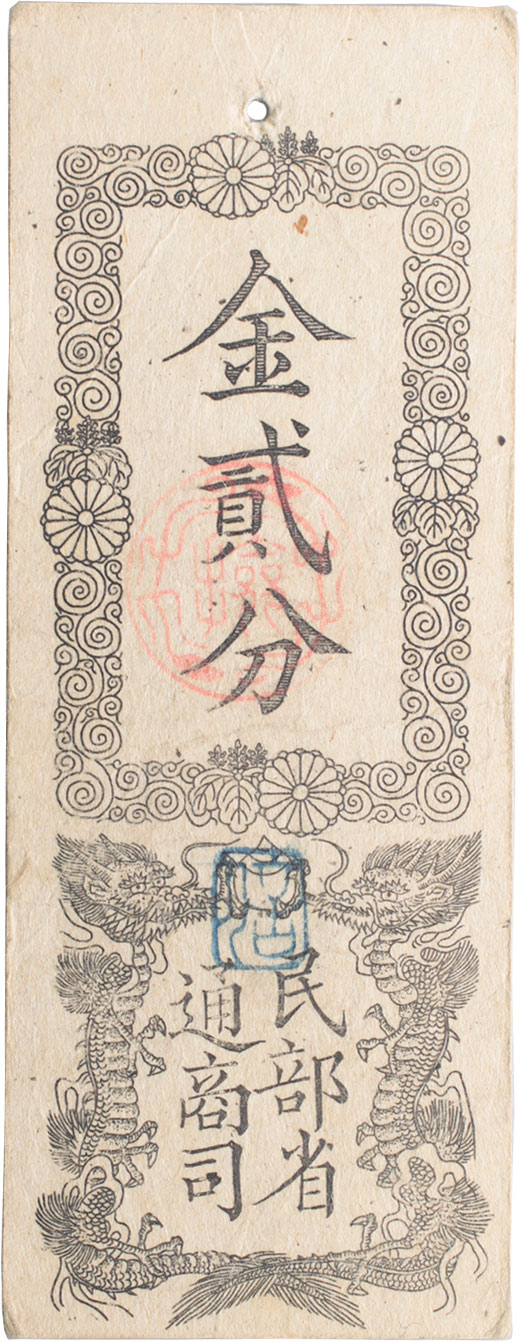 金貳分
民部省
通商司